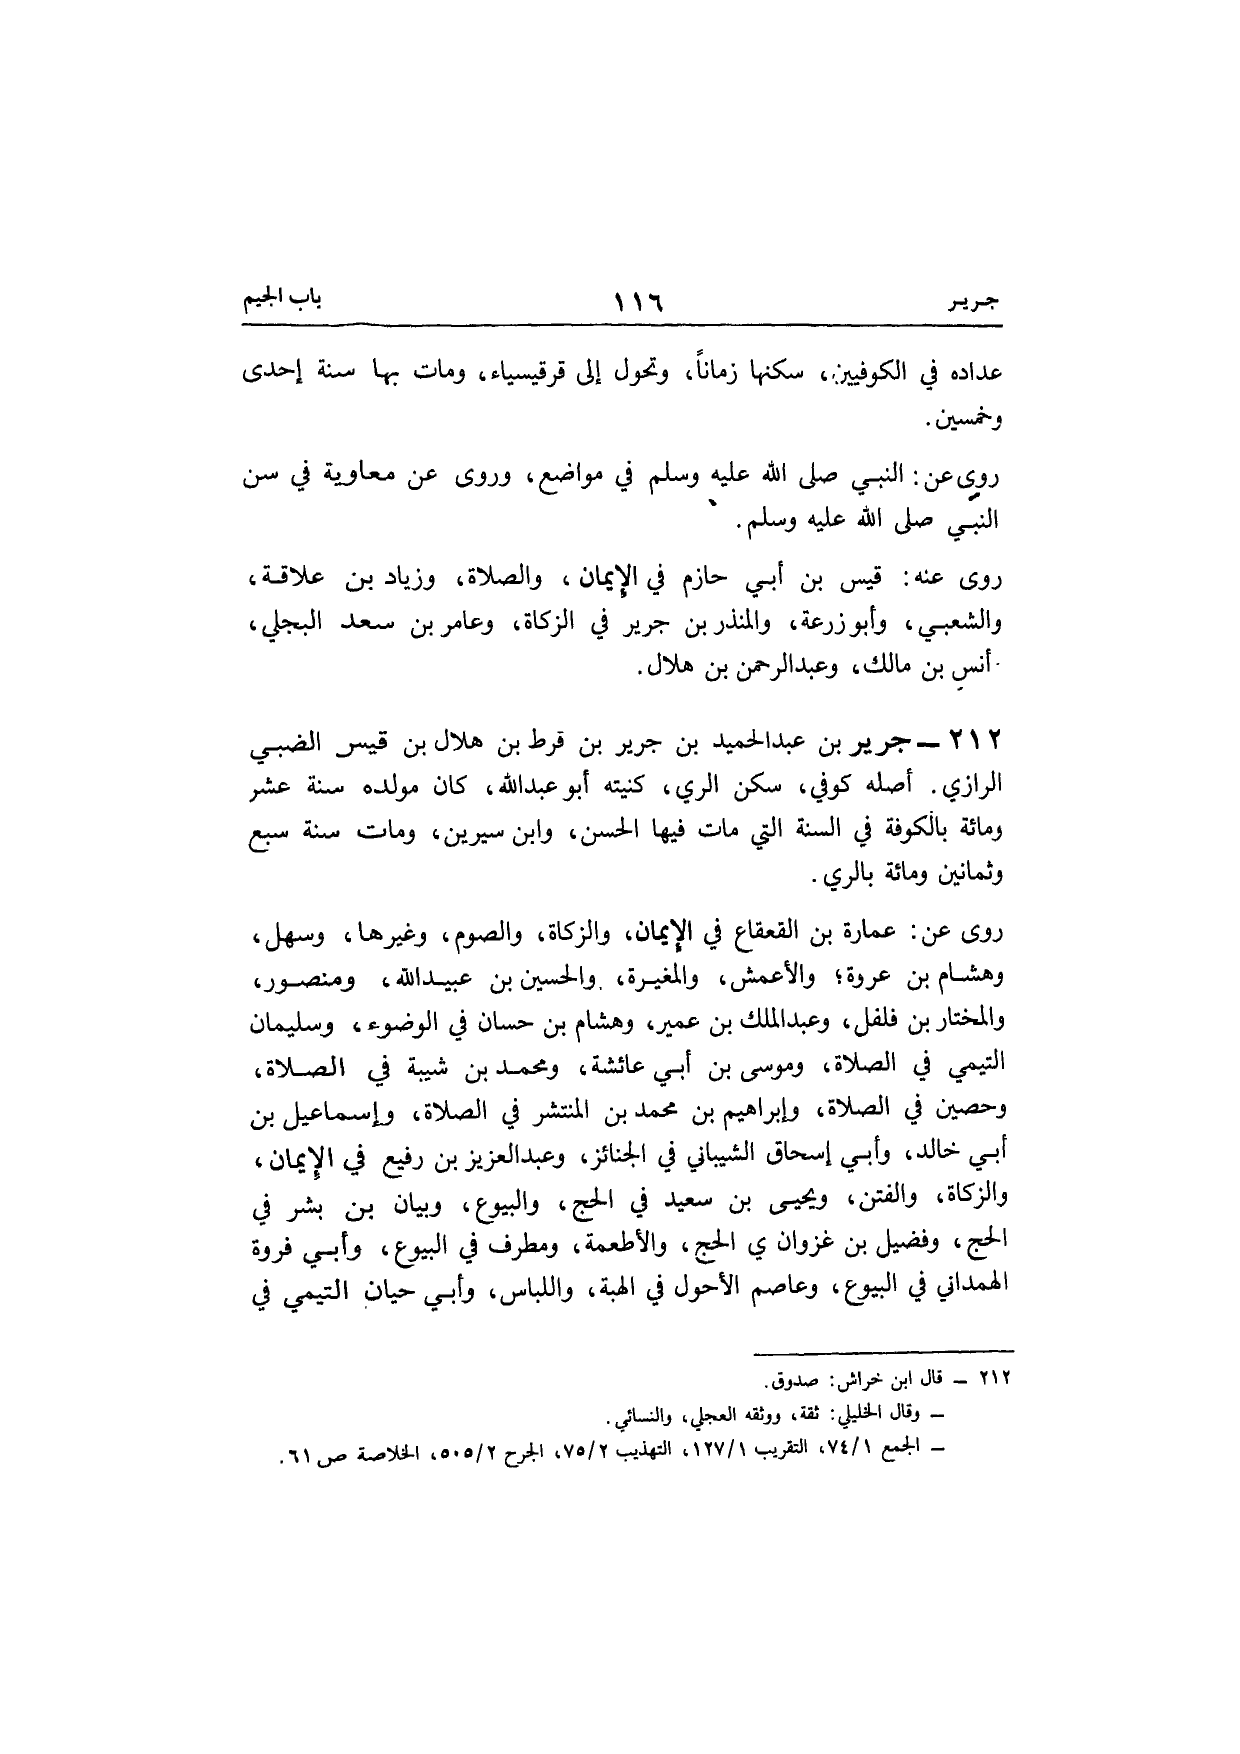 جرير ١١٦ باب الجيم
عداده في الكوفيين، سكنها زماناً، وتحول إلى قرقيسياء، ومات بها سنة إحدى
وخمسين.
روى عن: النبي صلى الله عليه وسلم في مواضع، وروى عن معاوية في سن
النبي صلى الله عليه وسلم.
روى عنه: قيس بن أبي حازم في الإيمان، والصلاة، وزياد بن علاقة،
والشعبي، وأبو زرعة، والمنذر بن جرير في الزكاة، وعامر بن سعد البجلي،
أنس بن مالك، وعبدالرحمن بن هلال.
٢١٢ ــ جرير بن عبدالحميد بن جرير بن قرط بن هلال بن قيس الضبي
الرازي. أصله كوفي، سكن الري، كنيته أبو عبدالله، كان مولده سنة عشر
ومائة بالكوفة في السنة التي مات فيها الحسن، وابن سيرين، ومات سنة سبع
وثمانين ومائة بالري.
روى عن: عمارة بن القعقاع في الإيمان، والزكاة، والصوم، وغيرها، وسهل،
وهشام بن عروة؛ والأعمش، والمغيرة، والحسين بن عبيدالله، ومنصور،
والمختار بن فلفل، وعبدالملك بن عمير، وهشام بن حسان في الوضوء، وسليمان
التيمي في الصلاة، وموسى بن أبي عائشة، ومحمد بن شيبة في الصلاة،
وحصين في الصلاة، وإبراهيم بن محمد بن المنتشر في الصلاة، وإسماعيل بن
أبي خالد، وأبي إسحاق الشيباني في الجنائز، وعبدالعزيز بن رفيع في الإيمان،
والزكاة، والفتن، ويحيى بن سعيد في الحج، والبيوع، وبيان بن بشر في
الحج، وفضيل بن غزوان ي الحج، والأطعمة، ومطرف في البيوع، وأبي فروة
الهمداني في البيوع، وعاصم الأحول في الهبة، واللباس، وأبي حيان التيمي في
٢١٢ ــ قال ابن خراش: صدوق.
ــ وقال الخليلي: ثقة، ووثقه العجلي، والنسائي.
ــ الجمع ٧٤/١، التقريب ١٢٧/١، التهذيب ٧٥/٢، الجرح ٥٠٥/٢، الخلاصة ص ٦١.